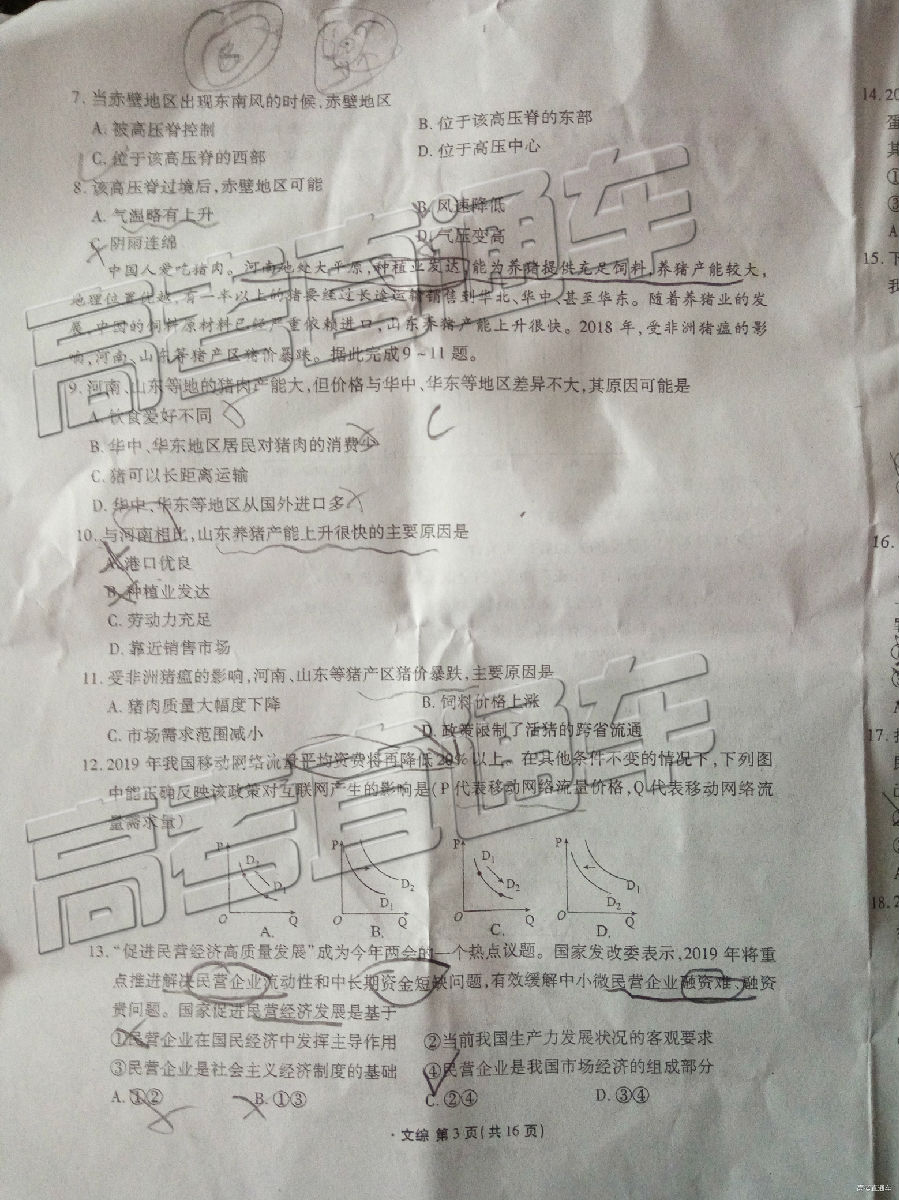 7. 当赤壁地区出现东南风的时候,赤壁地区
A. 被高压脊控制 B. 位于该高压脊的东部
C. 位于该高压脊的西部 D. 位于高压中心
8. 该高压脊过境后,赤壁地区可能
A. 气温略有上升 B. 风速降低
C. 阴雨连绵 D. 气压变高
中国人爱吃猪肉。河南地处大平原,种植业发达,能为养猪提供充足饲料,养猪产能较大,
地理位置优越,有一半以上的猪要经过长途运输销售到华北、华中、甚至华东。随着养猪业的发
展,中国的饲料原材料已经严重依赖进口,山东养猪产能上升很快。2018 年,受非洲猪瘟的影
响,河南、山东等猪产区猪价暴跌。据此完成9~11 题。
9. 河南、山东等地的猪肉产能大,但价格与华中、华东等地区差异不大,其原因可能是
A. 饮食爱好不同
C
B. 华中、华东地区居民对猪肉的消费少
C. 猪可以长距离运输
D. 华中、华东等地区从国外进口多
10. 与河南相比,山东养猪产能上升很快的主要原因是
A. 港口优良
B. 种植业发达
C. 劳动力充足
D. 靠近销售市场
11. 受非洲猪瘟的影响,河南、山东等猪产区猪价暴跌,主要原因是
A. 猪肉质量大幅度下降 B. 饲料价格上涨
C. 市场需求范围减小 D. 政策限制了活猪的跨省流通
12. 2019 年我国移动网络流量平均资费将再降低20%以上。在其他条件不变的情况下,下列图
中能正确反映该政策对互联网产生的影响是(P 代表移动网络流量价格,Q 代表移动网络流
量需求量)
P D₂ D₁ O Q P D₂ D₁ O Q P D₁ D₂ O Q P D₁ D₂ O Q
A. B. C. D.
13. “促进民营经济高质量发展”成为今年两会的一个热点议题。国家发改委表示,2019 年将重
点推进解决民营企业流动性和中长期资金短缺问题,有效缓解中小微民营企业融资难、融资
贵问题。国家促进民营经济发展是基于
①民营企业在国民经济中发挥主导作用 ②当前我国生产力发展状况的客观要求
③民营企业是社会主义经济制度的基础 ④民营企业是我国市场经济的组成部分
A. ①② B. ①③ C. ②④ D. ③④
·文综 第 3 页(共 16 页)
14. 20
蛋
其
①
③
A
15. 下
我
16.
17.
18. 2
高考直通车
高考直通车
高考直通车